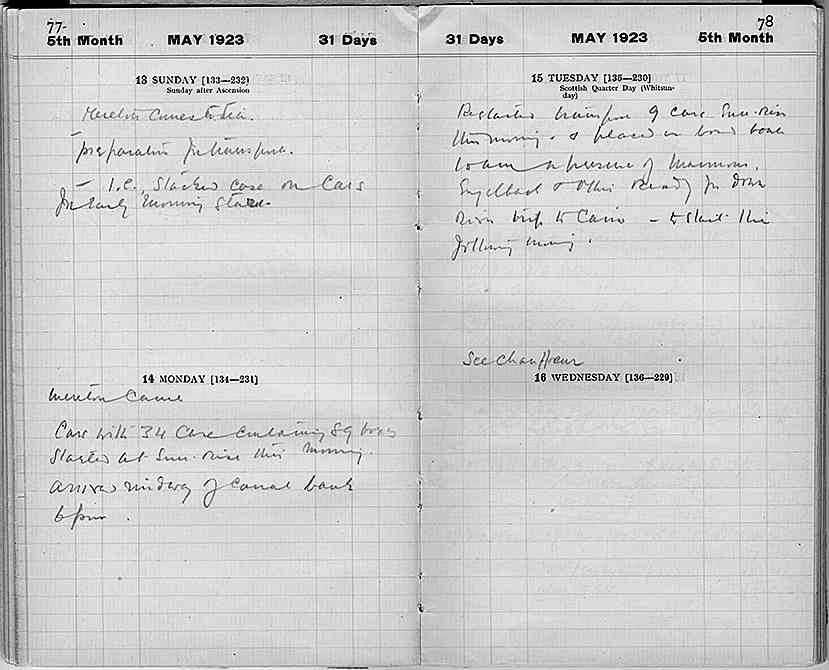 77-
5th Month MAY 1923 31 Days
13 SUNDAY [133—232]
Sunday after Ascension
Mereton came to tea.
preparation for transport.
— I.C. Stacked case on Cars
for Early morning start.
14 MONDAY [134—231]
Mereton came
Cars with 34 case containing 89 boxes
Started at Sun-rise this morning.
arrived midway of canal bank
6 pm.
78
31 Days MAY 1923 5th Month
15 TUESDAY [135—230]
Scottish Quarter Day (Whitsun-
day)
Restarted transport of cars Sun-rise
this morning - & placed on board boat
10 am in presence of Mamour,
Engelbach & Others Ready for down
river trip to Cairo - to start the
following morning.
See Chauffeur
16 WEDNESDAY [136—229]